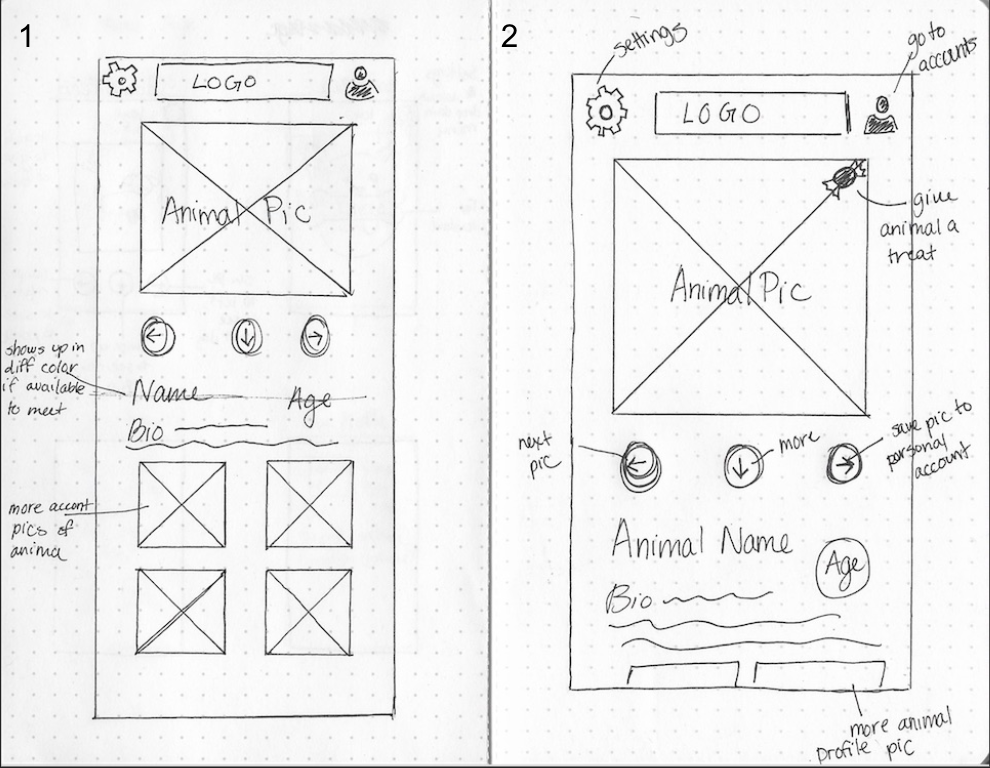 1
LOGO
Animal Pic
shows up in
diff color
if available
to meet
Name
Age
Bio
more accont
pics of
anima
2
settings
go to
accounts
LOGO
give
animal a
treat
Animal Pic
next
pic
more
save pic to
personal
account
Animal Name
Age
Bio
more animal
profile pic